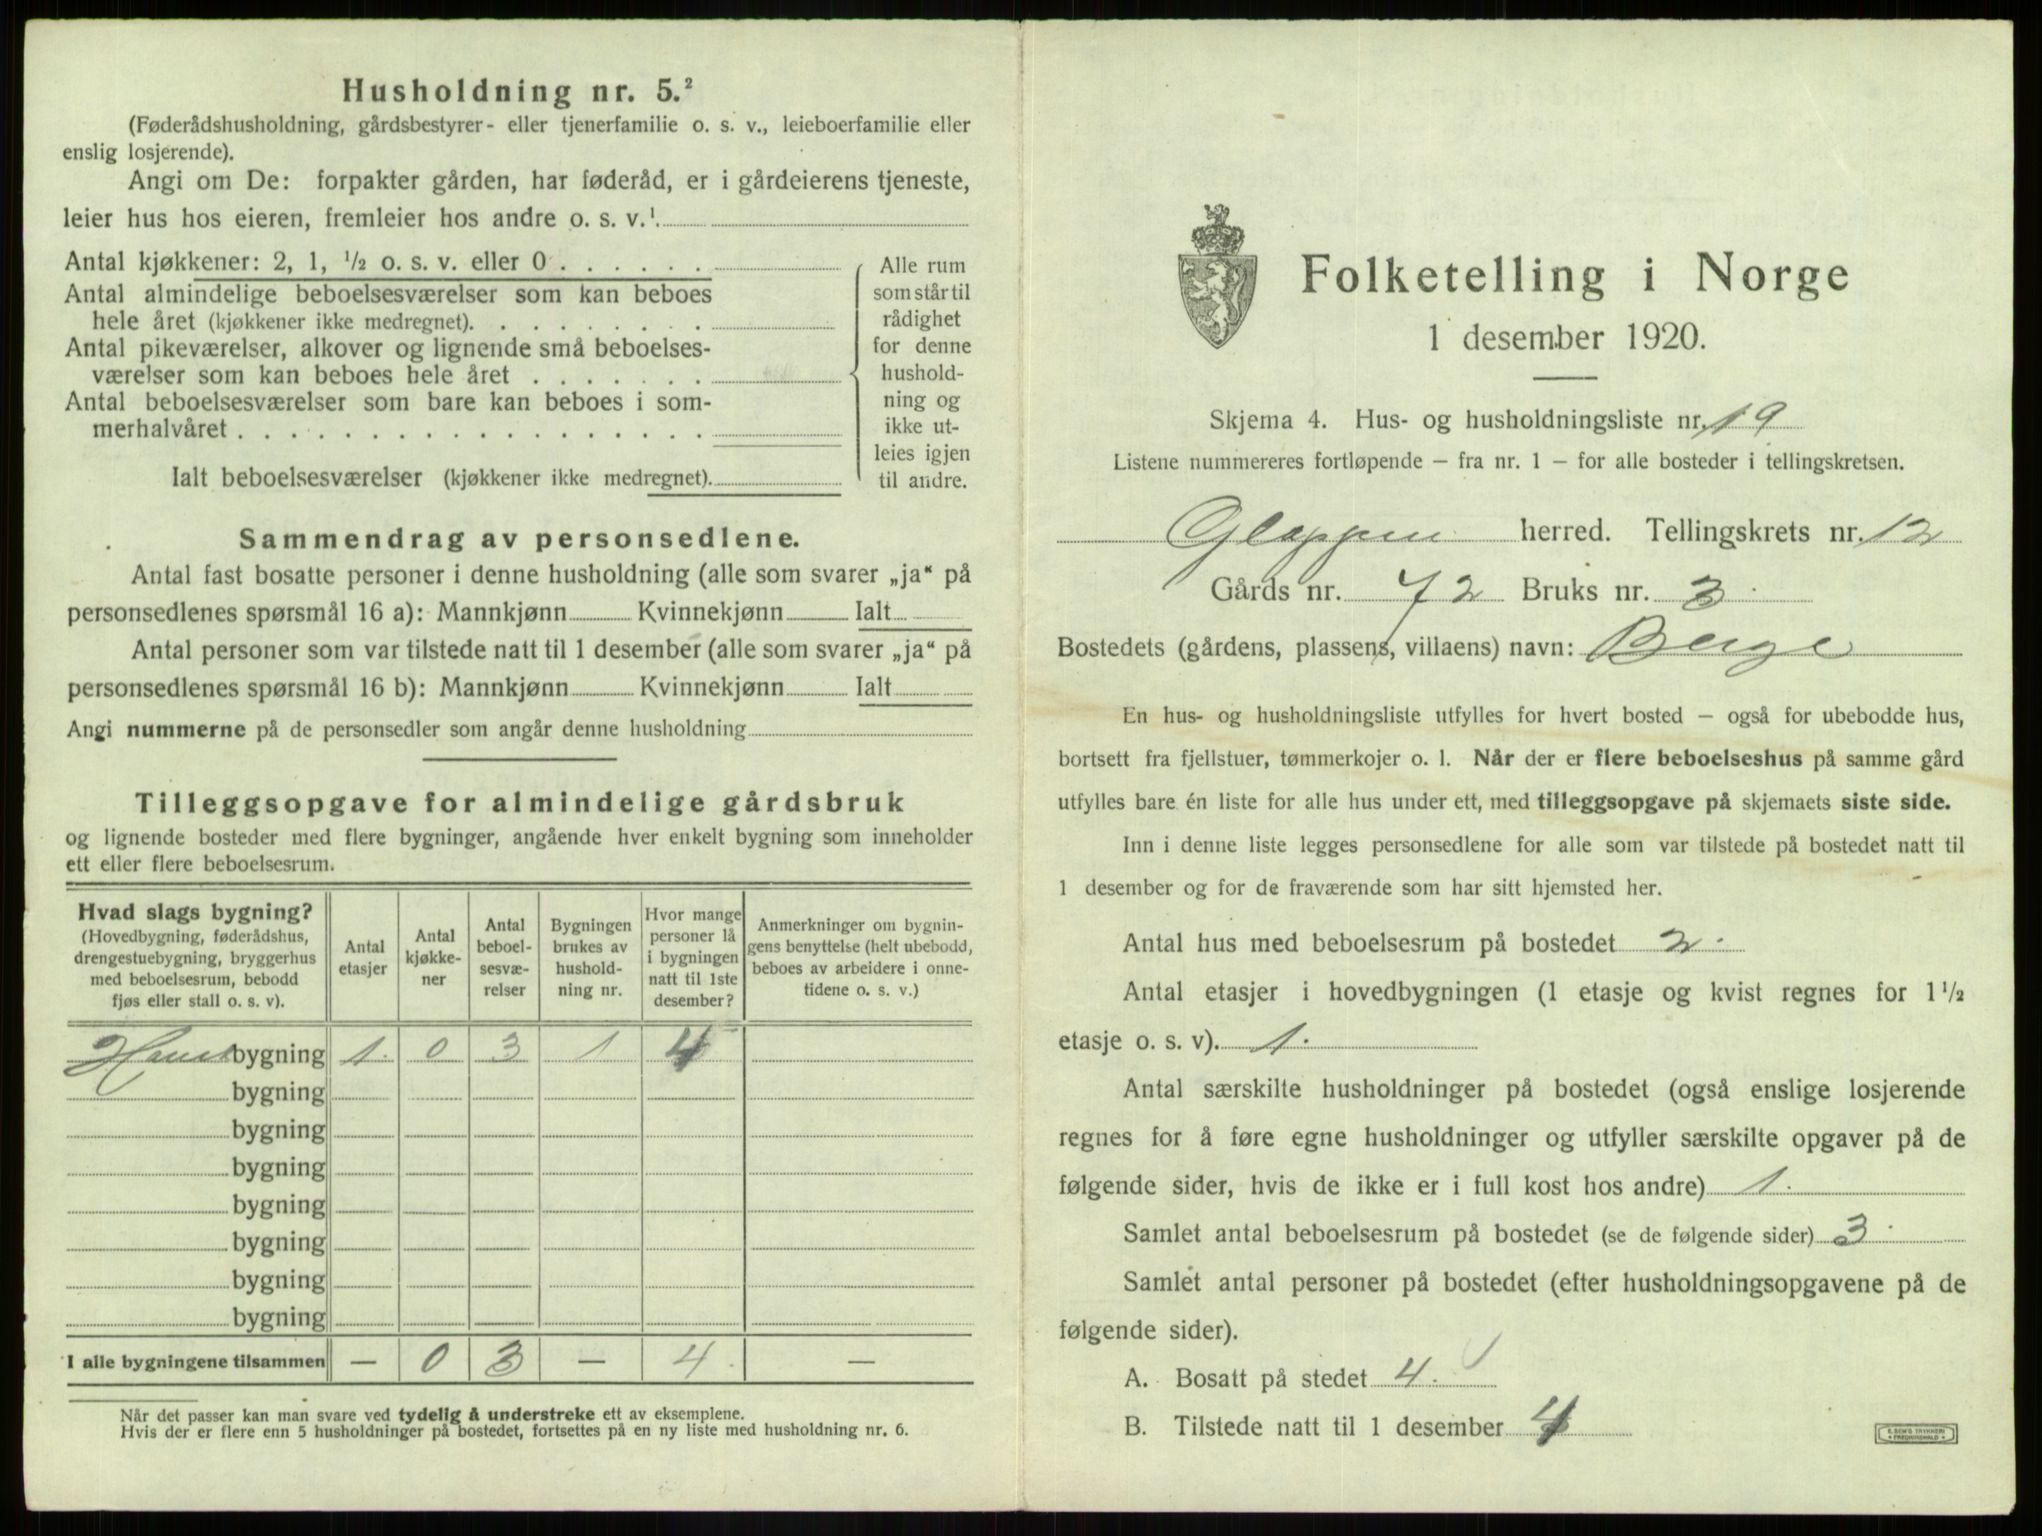 Husholdning nr. 5.²
(Føderådshusholdning, gårdsbestyrer- eller tjenerfamilie o. s. v., leieboerfamilie eller
enslig losjerende).
Angi om De: forpakter gården, har føderåd, er i gårdeierens tjeneste,
leier hus hos eieren, fremleier hos andre o. s. v.¹
Antal kjøkkener: 2, 1, ½ o. s. v. eller 0
Antal almindelige beboelsesværelser som kan beboes
hele året (kjøkkener ikke medregnet).
Antal pikeværelser, alkover og lignende små beboelses-
værelser som kan beboes hele året
Antal beboelsesværelser som bare kan beboes i som-
merhalvåret
Ialt beboelsesværelser (kjøkkener ikke medregnet).
Alle rum
som står til
rådighet
for denne
hushold-
ning og
ikke ut-
leies igjen
til andre.
Sammendrag av personsedlene.
Antal fast bosatte personer i denne husholdning (alle som svarer „ja“ på
personsedlenes spørsmål 16 a): Mannkjønn Kvinnekjønn Ialt
Antal personer som var tilstede natt til 1 desember (alle som svarer „ja“ på
personsedlenes spørsmål 16 b): Mannkjønn Kvinnekjønn Ialt
Angi nummerne på de personsedler som angår denne husholdning
Tilleggsopgave for almindelige gårdsbruk
og lignende bosteder med flere bygninger, angående hver enkelt bygning som inneholder
ett eller flere beboelsesrum.
Hvad slags bygning?
(Hovedbygning, føderådshus,
drengestuebygning, bryggerhus
med beboelsesrum, bebodd
fjøs eller stall o. s. v).
Antal
etasjer
Antal
kjøkke-
ner
Antal
beboel-
sesvæ-
relser
Bygningen
brukes av
hushold-
ning nr.
Hvor mange
personer lå
i bygningen
natt til 1ste
desember?
Anmerkninger om bygnin-
gens benyttelse (helt ubebodd,
beboes av arbeidere i onne-
tidene o. s. v.)
bygning 1. 0 3 1 4
bygning
bygning
bygning
bygning
bygning
bygning
bygning
I alle bygningene tilsammen — 0 3 — 4 —
Når det passer kan man svare ved tydelig å understreke ett av eksemplene.
Hvis der er flere enn 5 husholdninger på bostedet, fortsettes på en ny liste med husholdning nr. 6.
Folketelling i Norge
1 desember 1920.
Skjema 4. Hus- og husholdningsliste nr. 19
Listene nummereres fortløpende – fra nr. 1 – for alle bosteder i tellingskretsen.
Gloppen herred. Tellingskrets nr. 12
Gårds nr. 72 Bruks nr. 3
Bostedets (gårdens, plassens, villaens) navn: Berge
En hus- og husholdningsliste utfylles for hvert bosted – også for ubebodde hus,
bortsett fra fjellstuer, tømmerkojer o. l. Når der er flere beboelseshus på samme gård
utfylles bare én liste for alle hus under ett, med tilleggsopgave på skjemaets siste side.
Inn i denne liste legges personsedlene for alle som var tilstede på bostedet natt til
1 desember og for de fraværende som har sitt hjemsted her.
Antal hus med beboelsesrum på bostedet 2.
Antal etasjer i hovedbygningen (1 etasje og kvist regnes for 1½
etasje o. s. v). 1.
Antal særskilte husholdninger på bostedet (også enslige losjerende
regnes for å føre egne husholdninger og utfyller særskilte opgaver på de
følgende sider, hvis de ikke er i full kost hos andre) 1.
Samlet antal beboelsesrum på bostedet (se de følgende sider) 3.
Samlet antal personer på bostedet (efter husholdningsopgavene på de
følgende sider).
A. Bosatt på stedet 4.
B. Tilstede natt til 1 desember 4
E. SEM'S TRYKKERI
FREDRIKSHALD